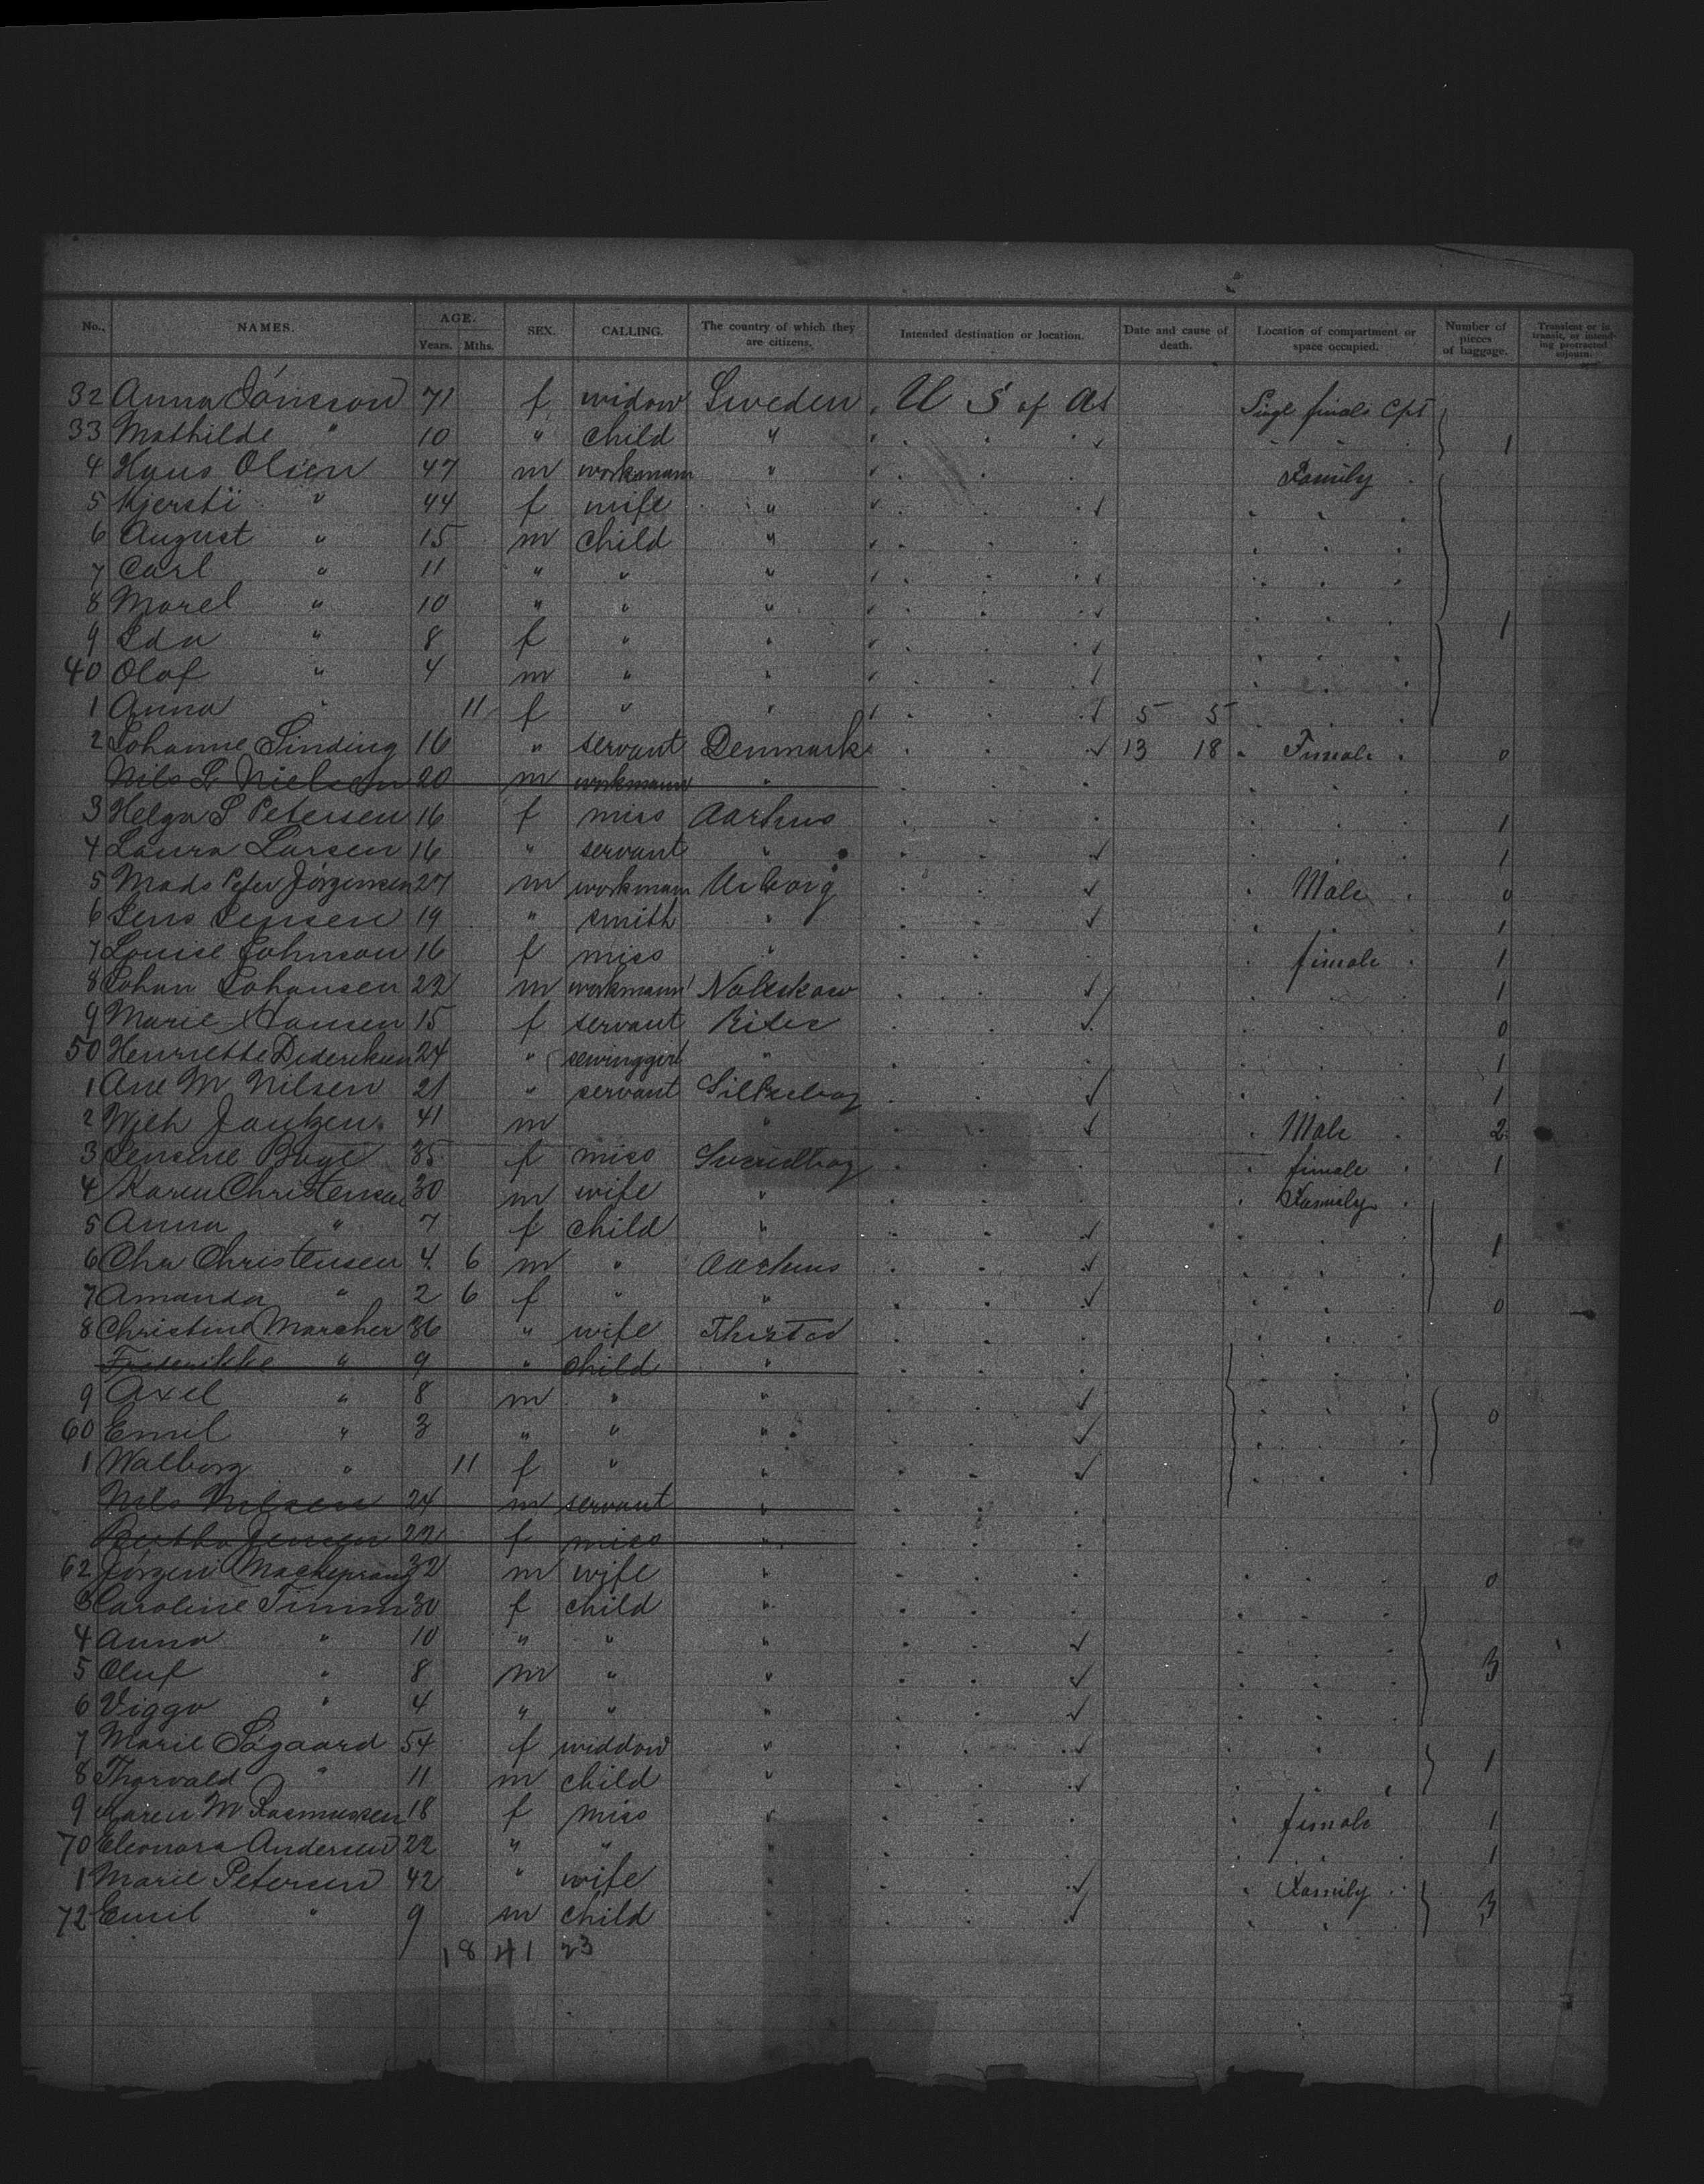 No. NAMES. AGE. Years. Mths. SEX. CALLING. The country of which they are citizens. Intended destination or location. Date and cause of death. Location of compartment or space occupied. Number of pieces of baggage. Transient or in transit, or intending protracted sojourn.
32 Anna Jönsson 71 f widow Sweden U S of A Singl female Cpt
33 Mathilde " 10 " child " 1
4 Hans Olsen 47 m workmann " Family
5 Kjersti " 44 f wife "
6 August " 15 m child "
7 Carl " 11 " " "
8 Marel " 10 " " " 1
9 Ida " 8 f " "
40 Olaf " 4 m " "
1 Anna " 11 f " " 5 5
2 Johanne Sinding 16 " servant Denmark 13 18 Female 0
Nils L Nielsen 20 m workmann "
3 Helga S Petersen 16 f miss Aarhus 1
4 Laura Larsen 16 " servant " 1
5 Mads Peter Jörgensen 27 m workmann Male 0
6 Jens Jensen 19 " smith " 1
7 Louise Johnson 16 f miss " female 1
8 Johan Johansen 22 m workmann Nakskow 1
9 Marie Hansen 15 f servant Ribe 0
50 Henriette Dideriksen 24 " sewinggirl " 1
1 Ane M Nilsen 21 " servant Silkeborg 1
2 Wilh Jantzen 41 m " Male 2
3 Jensine Boye 35 f miss Svendborg female 1
4 Karen Christensen 30 m wife " Family
5 Anna " 7 f child " 1
6 Chr Christensen 4 6 m " Aarhus
7 Amanda " 2 6 f " " 0
8 Christine Marcher 36 " wife Thisted
Frederikke " 9 " child "
9 Axel " 8 m " " 0
60 Emil " 3 " " "
1 Walborg " 11 f " "
Nils Nilsen 24 m servant "
Bertha Jensen 22 f miss "
62 Jörgen Mackeprang 32 m wife " 0
3 Caroline Timm 30 f child "
4 Anna " 10 " " "
5 Oluf " 8 m " " 3
6 Viggo " 4 " " "
7 Marie Sögaard 54 f widdow " 1
8 Thorvald " 11 m child "
9 Karen M Rasmussen 18 f miss " female 1
70 Eleonora Andersen 22 " " " 1
1 Marie Petersen 42 " wife " Family 3
72 Emil " 9 m child "
18 41 23